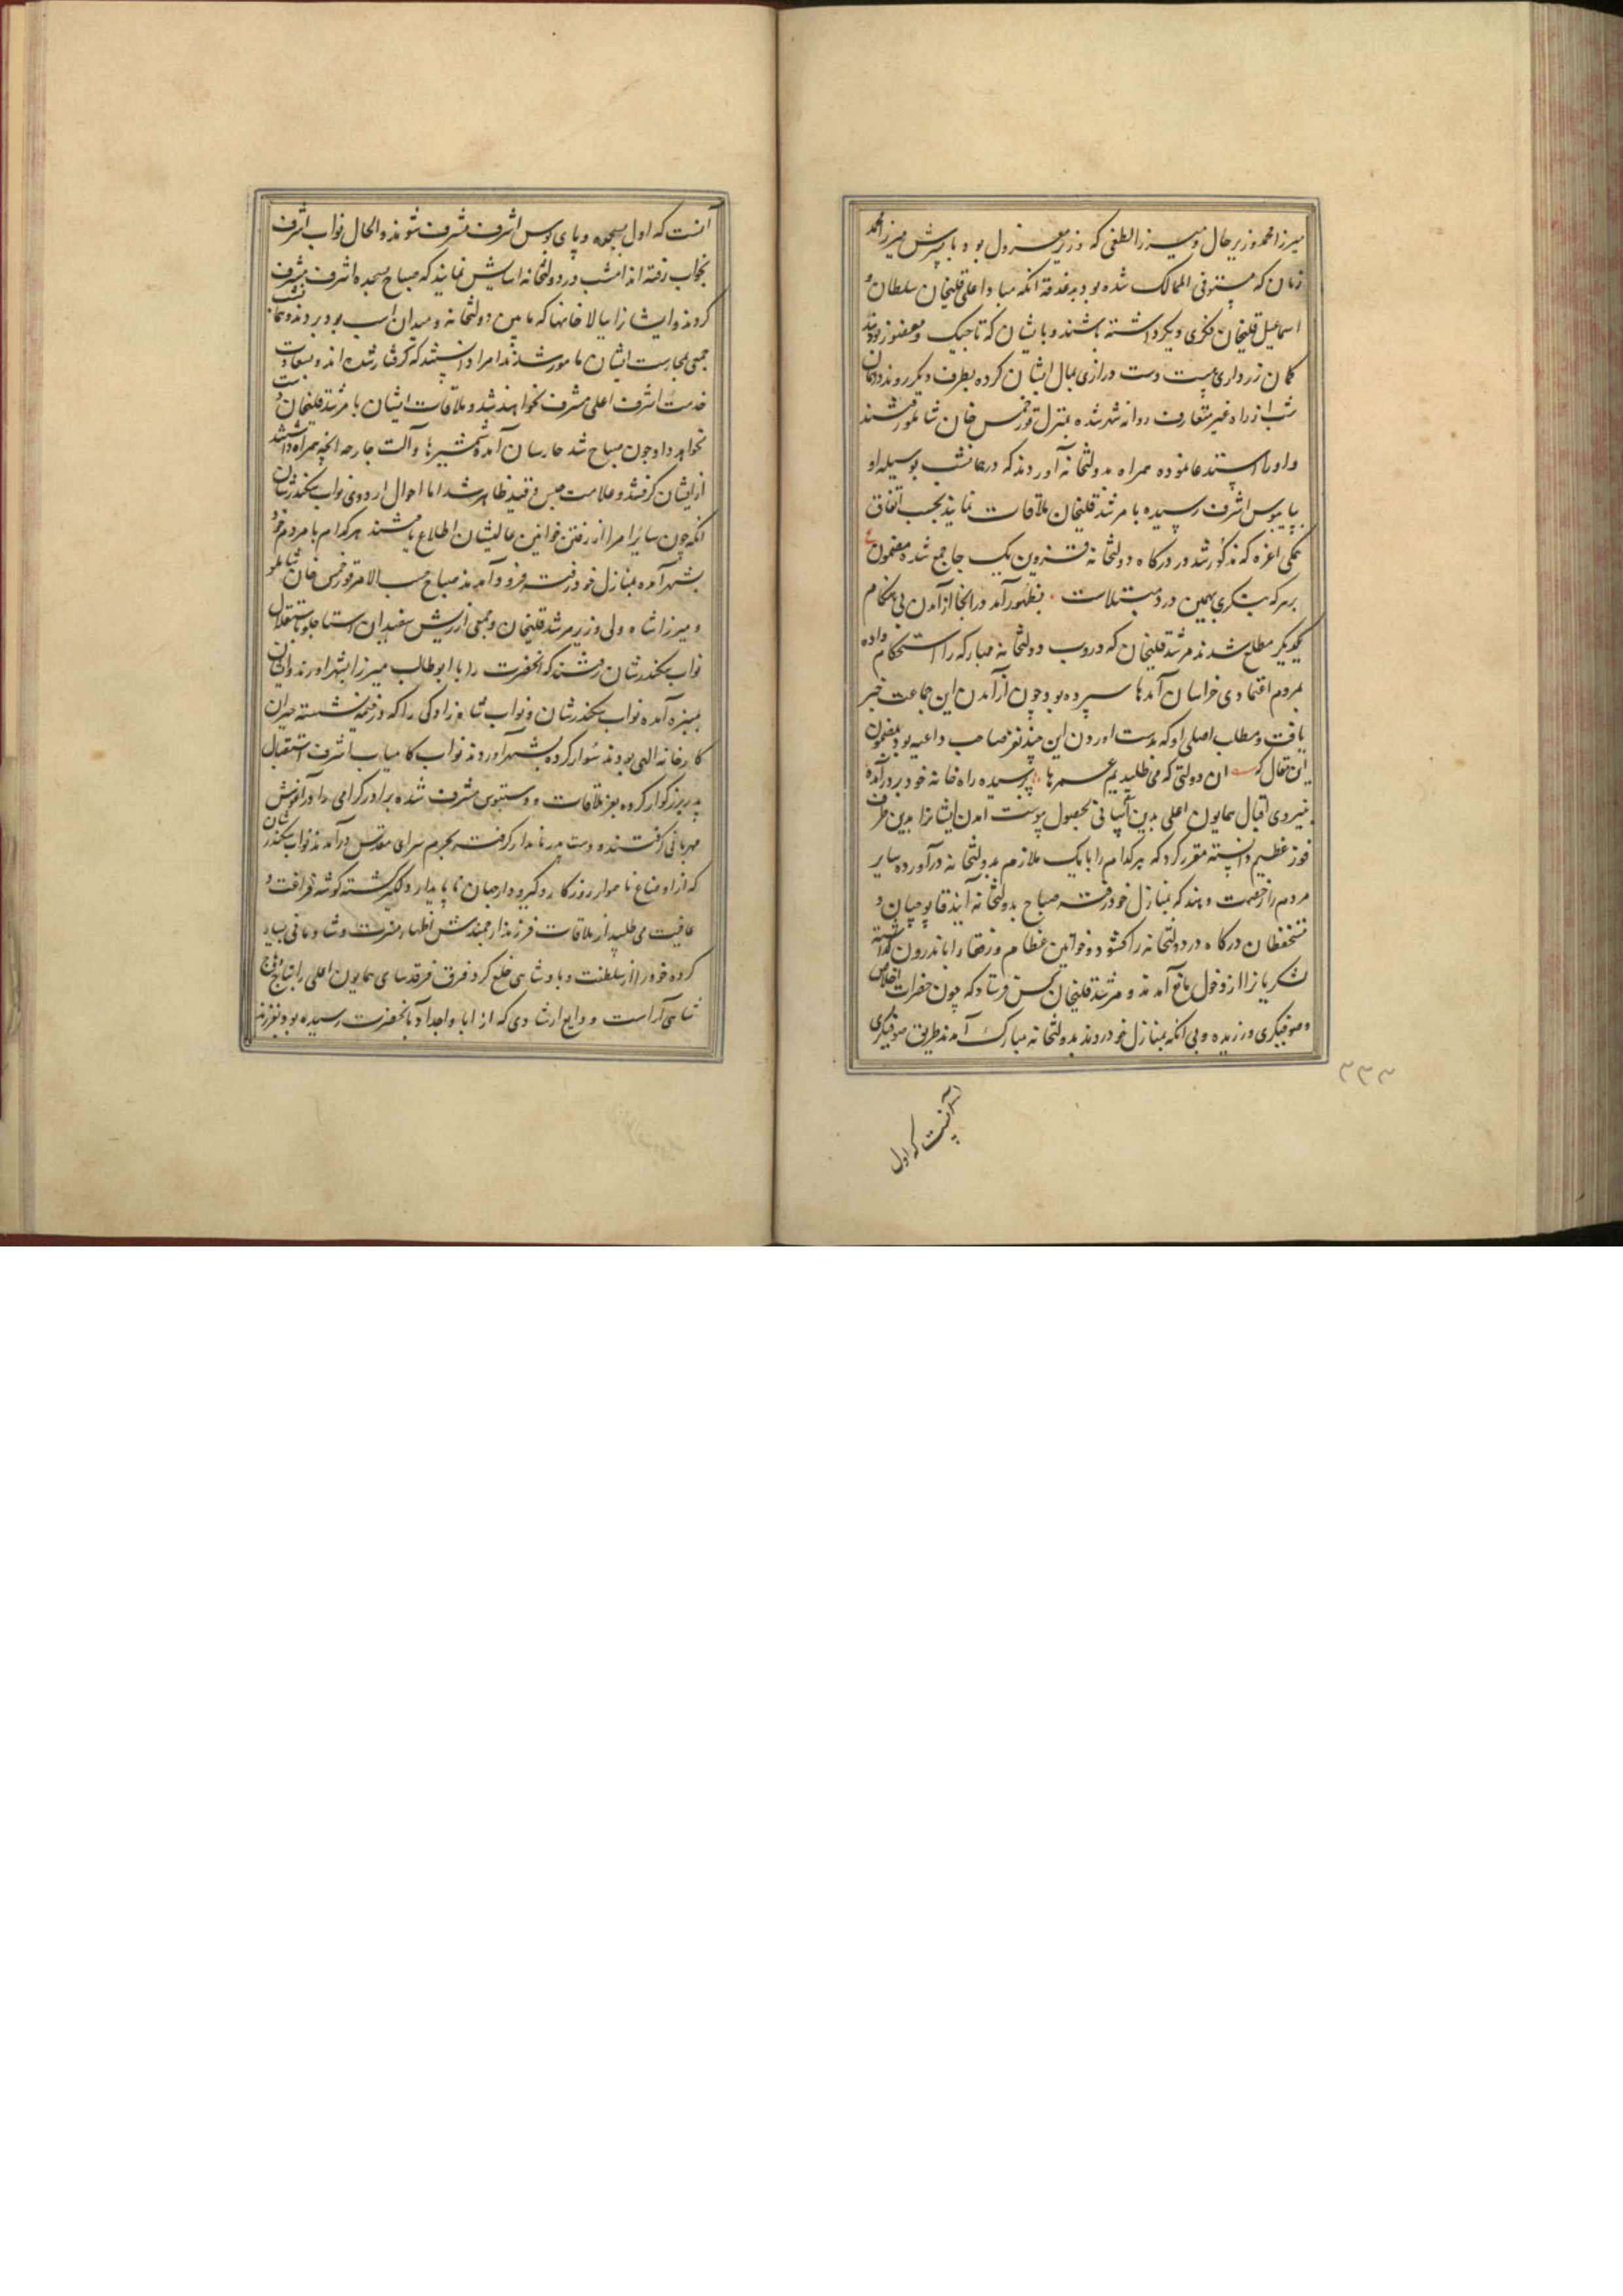 میرزا محمد وزیر حال و میرزا لطفی که وزیر معزول بود با پسرش میرزا محمد
زمان که مستوفی الممالک شده بود بدغدغه انکه مبادا علی قلیخان سلطان و
اسماعیل قلیخان فکری دیکر داشته باشند و با یشان که تاجیک و
کمان زرداری هست دست درازی بمال ایشان کرده بطرف دیکر روند در همان
شب از راه غیر متعارف روانه شهر شده بمنزل قورخمس خان شاملو رفتند
و او را همراه بدولتخانه آوردند که در همانشب بوسیله او
بپایبوس اشرف رسیده با مرشد قلیخان ملاقات نمایند بحسب اتفاق
تمکی اعزه که مذکور شد در درکاه دولتخانه قزوین یک جا جمع شده مضمون ع
بهر که بنکری بهمین درد مبتلاست بظهور آمد در انجا از آمدن بی هنکام
یکدیکر مطلع شدند مرشد قلیخان که دروب دولتخانه مبارکه را استحکام داده
بمردم اعتمادی خراسان آنها سپرده بود چون از آمدن این جماعت خبر
یافت و مطلب اصلی او که بدست اوردن این چند نفر صاحب داعیه بود بمضمون
این مقال که ان دولتی که می طلبدیم عمرها پرسیده راه خانه خود بر در آمده
بنیروی اقبال همایون اعلی بدین آسانی بحصول پیوست امدن ایشانرا بدین طرف
فوز عظیم دانسته مقرر کرد که هر کدام را با یک ملازم بدولتخانه درآورده سایر
مردم را رخصت دهند که بمنازل خود رفته صباح بدولتخانه آیند قاپوچیان و
مستحفظان درکاه در دولتخانه را کشوده خوانین عظام و رفقا را باندرون کذاشته
لشکریانرا از دخول مانع آمدند و مرشد قلیخان کس فرستاد که چون حضرات اخلاص
و صوفیکری ورزیده و بی انکه بمنازل خود روند بدولتخانه مبارک آمدند طریق صوفیکری
۳۳۳
آنست که اول
آنست که اول بسجده و پای بوس اشرف مشرف شوند و الحال نواب اشرف
بخواب رفته اند امشب در دولتخانه اسایش نمایند که صباح بسجده اشرف مشرف
کردند و ایشانرا ببالا خانها که مابین دولتخانه و میدان اسب بود بردند و همان شب
جمعی بحارست ایشان مامور شدند امرا دانستند که کرفتار شده اند و بسعادت
خدمت اشرف اعلی مشرف نخواهند شد و ملاقات ایشان با مرشد قلیخان دست
نخواهد داد چون صباح شد حارسان آمده شمشیرها و آلت جارحه انچه همراه داشتند
از ایشان کرفتند و علامت حبس و قید ظاهر شد اما احوال اردوی نواب سکندرشان
انکه چون سایر امرا از رفتن خوانین عالیشان اطلاع یافتند هر کدام با مردم خود
بشهر آمده بمنازل خود رفته فرود آمدند صباح حسب الامر قورخمس خان شاملو
و میرزا شاه ولی وزیر مرشد قلیخان و جمعی از ریش سفیدان استاجلو باستقبال
نواب سکندرشان رفتند که انحضرت را با ابوطالب میرزا بشهر اورند و ایشان
آمده نواب سکندرشان و نواب شاهزادکی را که در خیمه نشسته حیران
کارخانه الهی بودند سوار کرده بشهر اوردند نواب کامیاب اشرف استقبال
پدر بزرکوار کرده بعز ملاقات و دستبوس مشرف شده برادر کرامی را در آغوش
مهربانی کرفتند و دست پدر نامدار کرفته بحرم سرای مقدس درآمدند نواب سکندر شان
که از اوضاع ناهموار روزکار و کیر و دار جهان ناپایدار دلکیر کشته کوشه فراغت و
عافیت می طلبید از ملاقات فرزند ارجمندش اظهار مسرت و شادمانی بسیار
کرده خود را از سلطنت و پادشاهی خلع کرد و فرق فرقدسای همایون اعلی را بتاج وهاج
شاهی آراست و ودایع ارشادی که از ابا و اجداد بانحضرت رسیده بود بفرزند